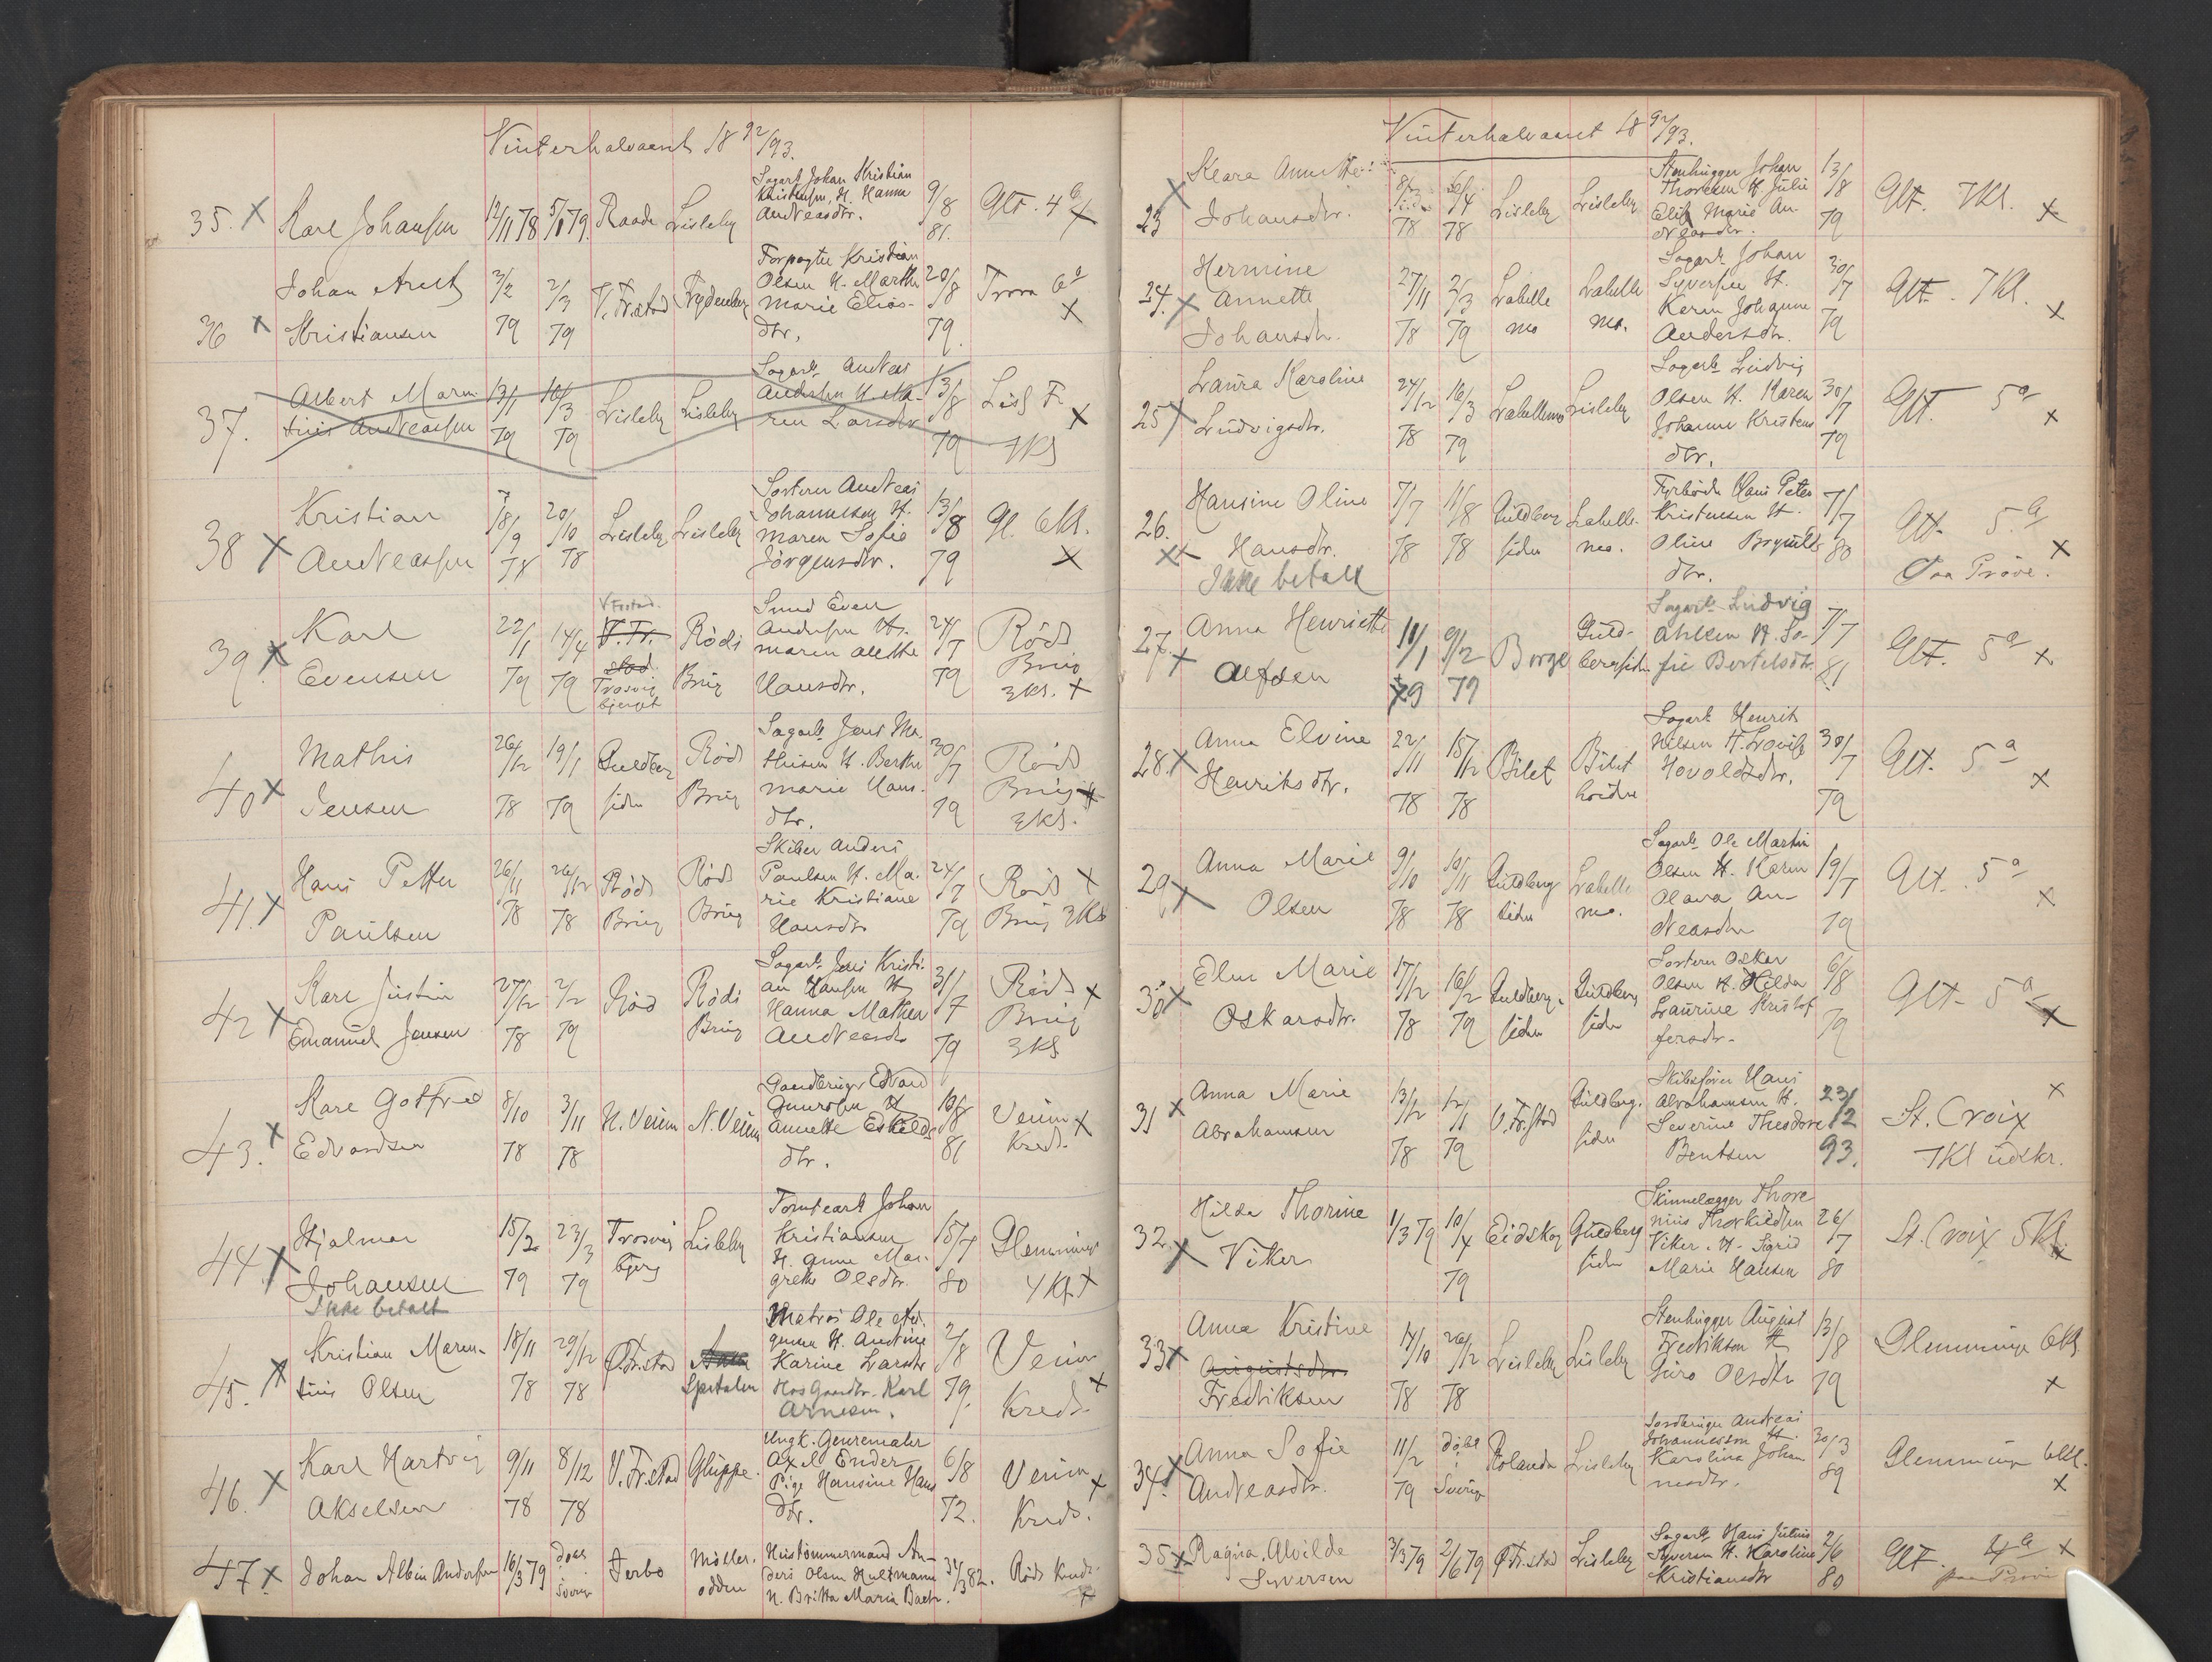 Vinterhalvaaret 18 92/93.
35. X Karl Johansen 12/11 78 5/1 79. Raade Lisleby Sagarb. Johan Kristian
Kristensen, H. Hanna
Andreasdtr. 9/8 81. Glt. 4 b X
36 X Johan Arest
Kristiansen 3/2 79 2/3 79 V. Fr.stad Frydenberg Forpagter Kristian
Olsen H. Marthe
Marie Elias-
dtr. 20/8 79. Trara 6 a X
37. Albert Maren-
tius Andreassen 13/1 79 16/3 79 Lisleby Lisleby Sagarb. Andreas
Andersen H. Ma-
ren Larsdtr 13/8 79 Lisl F. X
7Kl
38 X Kristian
Andreassen 7/8/9 78 20/10 78 Lisleby Lisleby Sorterer Andreas
Johannesen H.
Maren Sofie
Jörgensdtr. 13/8 79 Gl. 6Kl. X
39. X Karl
Evensen 22/1 79 14/4 79 V Frstad.
V. Fr.
stad.
Trosvig
bjerget Röds
Brug Smed Even
Andersen H.
Maren Alethe
Hansdtr. 24/7 79 Röds
Brug
3Kl. X
40 X Mathis
Jensen 26/12 78 19/1 79 Guldberg
siden Röds
Brug Sagarb. Jens Ma-
thisen H. Berthe
Marie Hans-
dtr. 30/7 79 Röds
Brug X
3Kl.
41. X Hans Petter
Paulsen 26/11 78 26/12 78 Röds
Brug Röds
Brug Skiber Anders
Paulsen H. Ma-
rie Kristiane
Hansdtr 24/7 79 Röds X
Brug 3Kl
42 X Karl Justin
Emanuel Jensen 27/12 78 2/2 79 Röd Röds
Brug Sagarb. Jens Kristi-
an Hansen H
Hanna Mathea
Andreasdtr 31/7 79 Röds X
Brug
3Kl
43. X Karl Gotfred
Edvardsen 8/10 78 3/11 78 N. Veum N. Veum Gaardbruger Edvard
H
Annette Eskilds
dtr. 10/8 81 Veum X
Kreds.
44. X Hjalmar
Johansen
Ikke betalt 15/2 79 23/3 79 Trosvig
bjerg Lisleby Tomtearb Johan
Kristiansen
H. Anne Mar-
grethe Olsdtr. 15/7 80 Glemminge
4 Kl X
45. X Kristian Maren-
tius Olsen 18/11 78 29/12 78 Ö.Fr.stad Spetalen Matros Ole
H. Andrine
Karine Larsdtr
Hos Gaardbr. Karl
Arnesen. 2/8 79. Veum X
Kreds.
46. X Karl Hartvig
Akselsen 9/11 78 8/12 78 V. Fr.stad Gluppe. Ungk. Genremaler
Axel Ender
Pige Hansine Hans
dtr. 6/8 72. Veum X
Kreds.
47. X Johan Albin Andersen 16/3 79 döbt
i
Sverige Jerbo Möller-
odden Hustömmermand An-
ders Olsen Hultmann
H. Britta Maria 31/3 82. Röds Kreds X
Vinterhalvaaret 18 92/93.
23 X Klara Annette
Johansdtr. 78 78 Lisleby Lisleby Stenhugger Johan
Thoresen H. Julie
Elis Marie An-
dreasdtr. 13/8 79 Glt. 7Kl. X
24. X Hermine
Annette
Johansdtr. 27/11 78 2/3 79 Labelle
mo Labelle
mo. Sagarb. Johan
Syversen H.
Karen Johanne
Andersdtr. 30/7 79 Glt. 7Kl. X
25 X Laura Karoline
Ludvigsdtr. 24/12 78 16/3 79 Labellemo Lisleby Sagarb. Ludvig
Olsen H. Karen
Johanne Kristens
dtr. 30/7 79 Glt. 5 a X
26. XX Hansine Oline
Hansdtr.
Ikke betalt 7/7 78 11/8 78 Guldberg
siden Labelle-
mo. Fyrböder Hans Peter
Kristensen H.
Oline Brynilds
dtr. 7/7 80 Glt. 5 a X
Paa Pröve.
27. X Anna Henriette
Alfsen 11/1 79 9/2 79 Borge Guld-
bergsiden Sagarb. Ludvig
Ahlsen H. So-
fie Bertelsdtr. 7/7 81 Glt. 5 a X
28. X Anna Elvine
Henriksdtr. 22/11 78 15/12 78 Bilet Bilet
hvidne Sagarb. Henrik
Nilsen H. Lovise
Hovoldsdtr. 30/7 79 Glt. 5 a X
29 X Anna Marie
Olsen 9/10 78 10/11 78 Guldberg
siden Labelle
mo. Sagarb. Ole Martin
Olsen H. Karen
Olava An-
dreasdtr 19/7 79 Glt. 5 a X
30 X Elen Marie
Oskarsdtr. 17/12 78 16/2 79 Guldberg-
siden Guldberg
siden Sorterer Oskar
Olsen H. Hilda
Laurine Kristof
fersdtr. 6/8 79 Glt. 5 a X
31 X Anna Marie
Abrahamsen 13/12 78 1/1 79 V. Fr.stad Guldberg-
siden Skibsförer Hans
Abrahamsen H.
Severine Theodore
Bentsen 23/12 93. St. Croix X
7Kl udskr.
32. X Hilda Thorine
Viker 1/3 79 10/4 79 Eidskog Guldberg
siden Skinnelægger Thore
nius Thorkildsen
Viker. H. Sigrid
Marie Hansen 26/7 80 St. Croix 5Kl. X
33 X Anna Kristine
Augustsdtr.
Fredriksen 14/10 78 26/12 78 Lisleby Lisleby Stenhugger August
Fredriksen H
Guro Olsdtr 13/8 79 Glemminge 6Kl. X
34. X Anna Sofie
Andreasdtr. 11/2 79 döbt
i
Sverige Rolanda Lisleby Jordbruger Andreas
Johannesson H.
Karolina Johan
nesdtr. 30/3 89 Glemminge 6Kl. X
35 X Ragna Alvilde
Syversen 3/3 79 2/6 79 Ö.Fr.stad Lisleby Sagarb. Hans Julius
Syversen H. Karoline
Kristiansdtr 2/6 80 Glt. 4 a X
paa Pröve